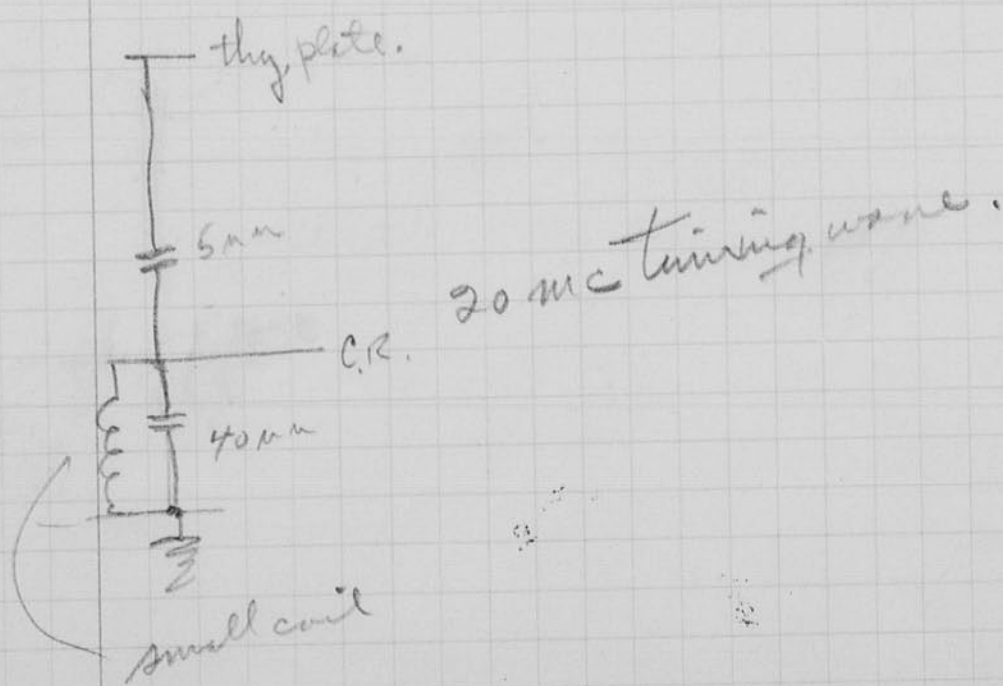 thy. plate.
5μμ
20 mc timing wave.
C.R.
40μμ
small coil